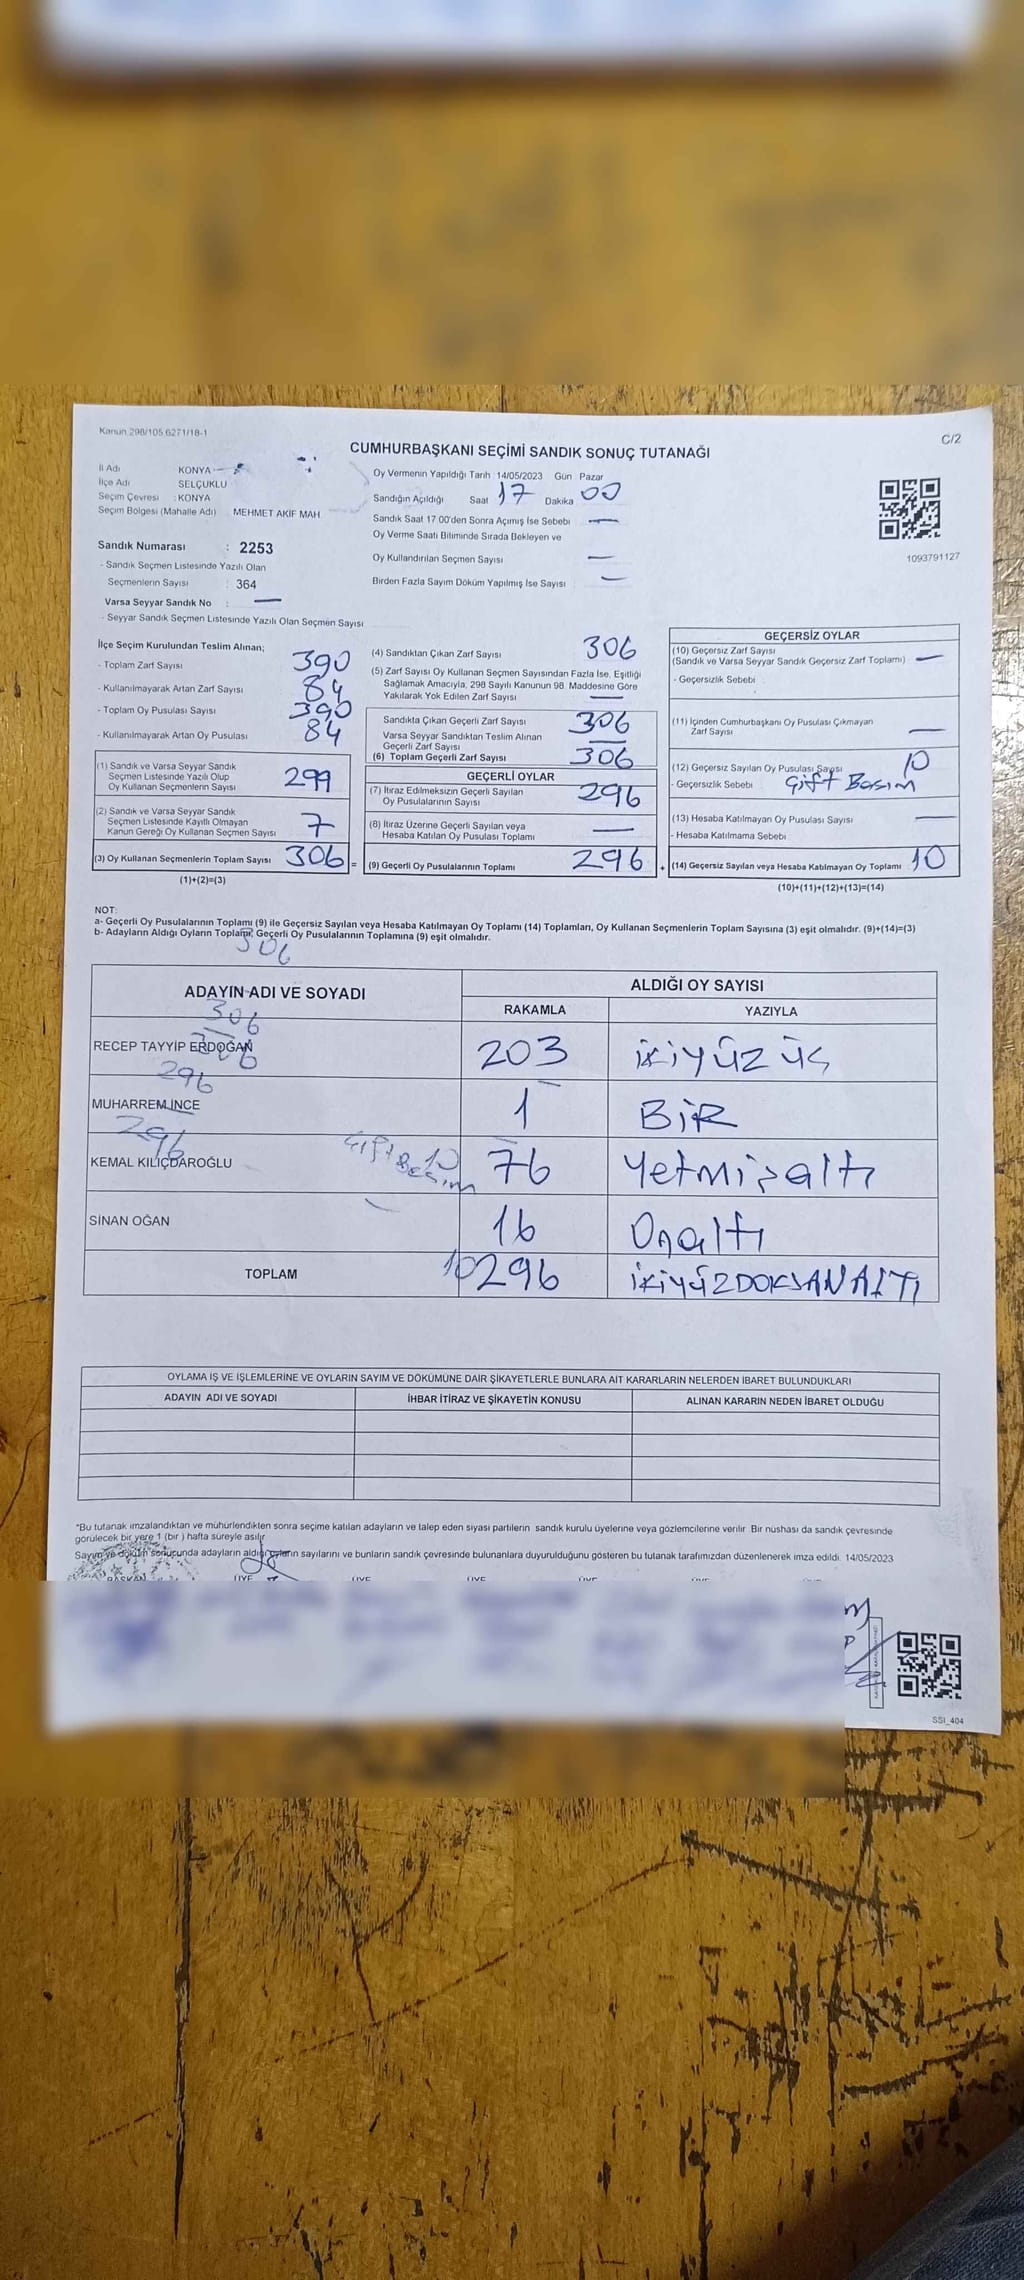 Kanun 298/105 6271/18-1
C/2
CUMHURBAŞKANI SEÇİMİ SANDIK SONUÇ TUTANAĞI
İl Adı KONYA
İlçe Adı SELÇUKLU
Seçim Çevresi : KONYA
Seçim Bölgesi (Mahalle Adı) MEHMET AKİF MAH
Oy Vermenin Yapıldığı Tarih 14/05/2023 Gün Pazar
Sandığın Açıldığı Saat 17 Dakika 00
Sandık Saat 17 00'den Sonra Açımış İse Sebebi —
Oy Verme Saati Bitiminde Sırada Bekleyen ve
Oy Kullandırılan Seçmen Sayısı —
Birden Fazla Sayım Döküm Yapılmış İse Sayısı —
1093791127
Sandık Numarası : 2253
- Sandık Seçmen Listesinde Yazılı Olan
Seçmenlerin Sayısı : 364
Varsa Seyyar Sandık No : —
- Seyyar Sandık Seçmen Listesinde Yazılı Olan Seçmen Sayısı
İlçe Seçim Kurulundan Teslim Alınan;
- Toplam Zarf Sayısı 390
- Kullanılmayarak Artan Zarf Sayısı 84
- Toplam Oy Pusulası Sayısı 390
- Kullanılmayarak Artan Oy Pusulası 84
(1) Sandık ve Varsa Seyyar Sandık
Seçmen Listesinde Yazılı Olup
Oy Kullanan Seçmenlerin Sayısı 299
(2) Sandık ve Varsa Seyyar Sandık
Seçmen Listesinde Kayıtlı Olmayan
Kanun Gereği Oy Kullanan Seçmen Sayısı 7
(3) Oy Kullanan Seçmenlerin Toplam Sayısı 306 =
(1)+(2)=(3)
(4) Sandıktan Çıkan Zarf Sayısı 306
(5) Zarf Sayısı Oy Kullanan Seçmen Sayısından Fazla İse, Eşitliği
Sağlamak Amacıyla, 298 Sayılı Kanunun 98. Maddesine Göre
Yakılarak Yok Edilen Zarf Sayısı —
Sandıkta Çıkan Geçerli Zarf Sayısı 306
Varsa Seyyar Sandıktan Teslim Alınan
Geçerli Zarf Sayısı —
(6) Toplam Geçerli Zarf Sayısı 306
GEÇERLİ OYLAR
(7) İtiraz Edilmeksizin Geçerli Sayılan
Oy Pusulalarının Sayısı 296
(8) İtiraz Üzerine Geçerli Sayılan veya
Hesaba Katılan Oy Pusulası Toplamı —
(9) Geçerli Oy Pusulalarının Toplamı 296 +
GEÇERSİZ OYLAR
(10) Geçersiz Zarf Sayısı
(Sandık ve Varsa Seyyar Sandık Geçersiz Zarf Toplamı) —
- Geçersizlik Sebebi
(11) İçinden Cumhurbaşkanı Oy Pusulası Çıkmayan
Zarf Sayısı —
(12) Geçersiz Sayılan Oy Pusulası Sayısı 10
- Geçersizlik Sebebi Çift Basım
(13) Hesaba Katılmayan Oy Pusulası Sayısı —
- Hesaba Katılmama Sebebi
(14) Geçersiz Sayılan veya Hesaba Katılmayan Oy Toplamı 10
(10)+(11)+(12)+(13)=(14)
NOT:
a- Geçerli Oy Pusulalarının Toplamı (9) ile Geçersiz Sayılan veya Hesaba Katılmayan Oy Toplamı (14) Toplamları, Oy Kullanan Seçmenlerin Toplam Sayısına (3) eşit olmalıdır. (9)+(14)=(3)
b- Adayların Aldığı Oyların Toplamı, Geçerli Oy Pusulalarının Toplamına (9) eşit olmalıdır.
306
ADAYIN ADI VE SOYADI
ALDIĞI OY SAYISI
RAKAMLA YAZIYLA
306
RECEP TAYYİP ERDOĞAN 203 İKİYÜZ ÜÇ
306
296
MUHARREM İNCE 1 BİR
296
Çift Basım 10
KEMAL KILIÇDAROĞLU 76 Yetmişaltı
SİNAN OĞAN 16 Onaltı
TOPLAM 10 296 İKİYÜZDOKSANALTI
OYLAMA İŞ VE İŞLEMLERİNE VE OYLARIN SAYIM VE DÖKÜMÜNE DAİR ŞİKAYETLERLE BUNLARA AİT KARARLARIN NELERDEN İBARET BULUNDUKLARI
ADAYIN ADI VE SOYADI İHBAR İTİRAZ VE ŞİKAYETİN KONUSU ALINAN KARARIN NEDEN İBARET OLDUĞU
*Bu tutanak imzalandıktan ve mühürlendikten sonra seçime katılan adayların ve talep eden siyasi partilerin sandık kurulu üyelerine veya gözlemcilerine verilir Bir nüshası da sandık çevresinde
görülecek bir yere 1 (bir ) hafta süreyle asılır
Sayım ve döküm sonucunda adayların aldığı oyların sayılarını ve bunların sandık çevresinde bulunanlara duyurulduğunu gösteren bu tutanak tarafımızdan düzenlenerek imza edildi. 14/05/2023
BAŞKAN ÜYE ÜYE ÜYE ÜYE ÜYE
SSİ_404